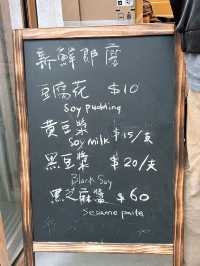 新鮮即磨
豆腐花 $10
Soy pudding
黄豆漿 $15/支
Soy milk
黑豆漿 $20/支
Black Soy
黑芝麻醬 $60
Sesame paste